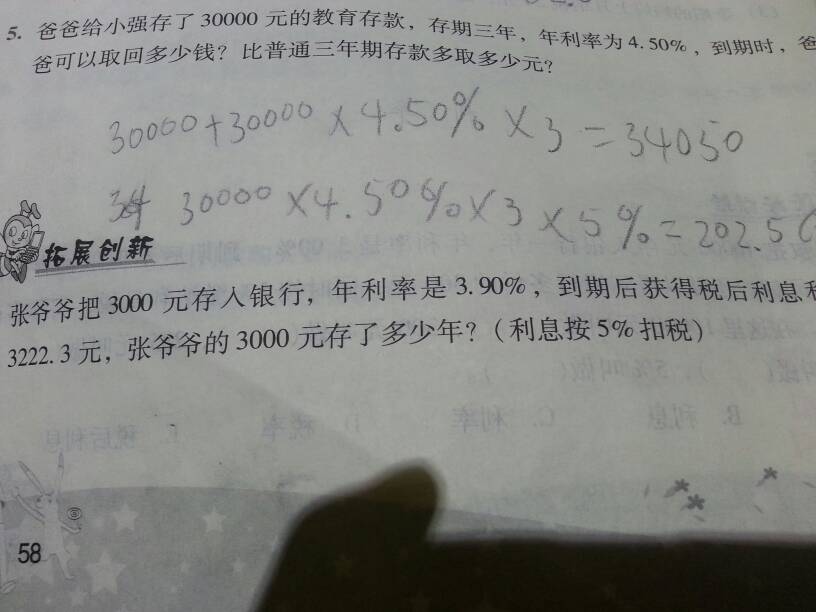 5. 爸爸给小强存了 30000 元的教育存款，存期三年，年利率为 4.50%，到期时，爸
爸可以取回多少钱？比普通三年期存款多取多少元？
30000+30000×4.50%×3=34050
30000×4.50%×3×5%=202.50
拓展创新
张爷爷把 3000 元存入银行，年利率是 3.90%，到期后获得税后利息和
3222.3 元，张爷爷的 3000 元存了多少年？（利息按 5% 扣税）
B. 利息 C. 利率 D. 税率 E. 税后利息
58